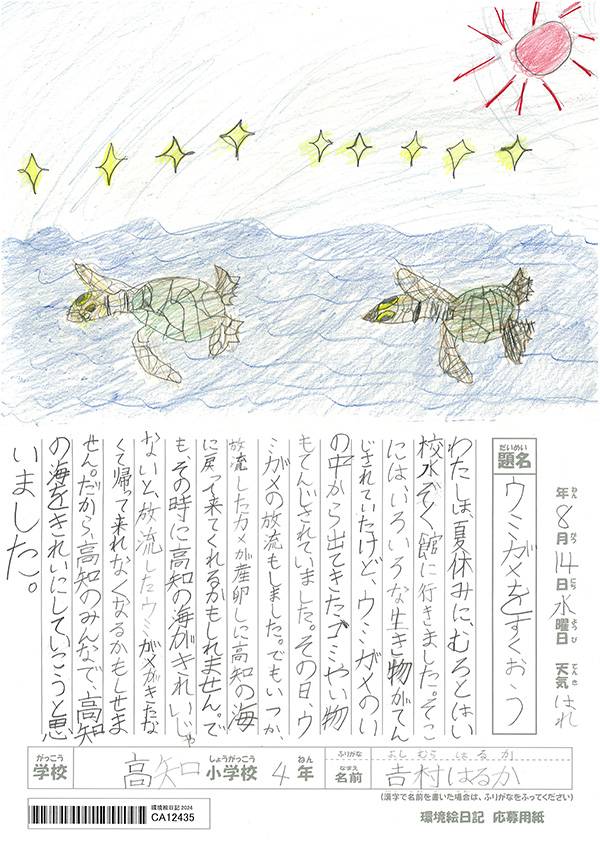 年8月14日水曜日 天気はれ
ねん がつ にち ようび てんき
だいめい
題名
ウミガメをすくおう
わたしは、夏休みに、むろとはい
校水ぞく館に行きました。そこ
にはいろいろな生き物がてん
じされていたけど、ウミガメのい
の中から出てきた、ゴミやい物
もてんじされていました。その日、ウ
ミガメの放流もしました。でもいつか、
放流したカメが産卵しに高知の海
に戻って来てくれるかもしれません。で
も、その時に高知の海がきれいじゃ
ないと、放流したウミガメがきたな
くて帰って来れなくなるかもしせま
せん。だから、高知のみんなで、高知
の海をきれいにしていこうと思
いました。
がっこう
学校
高知
しょうがっこう
小学校
4
ねん
年
ふりがな
よしむらはるか
なまえ
名前
吉村はるか
(漢字で名前を書いた場合は、ふりがなをふってください)
環境絵日記 応募用紙
環境絵日記2024
CA12435